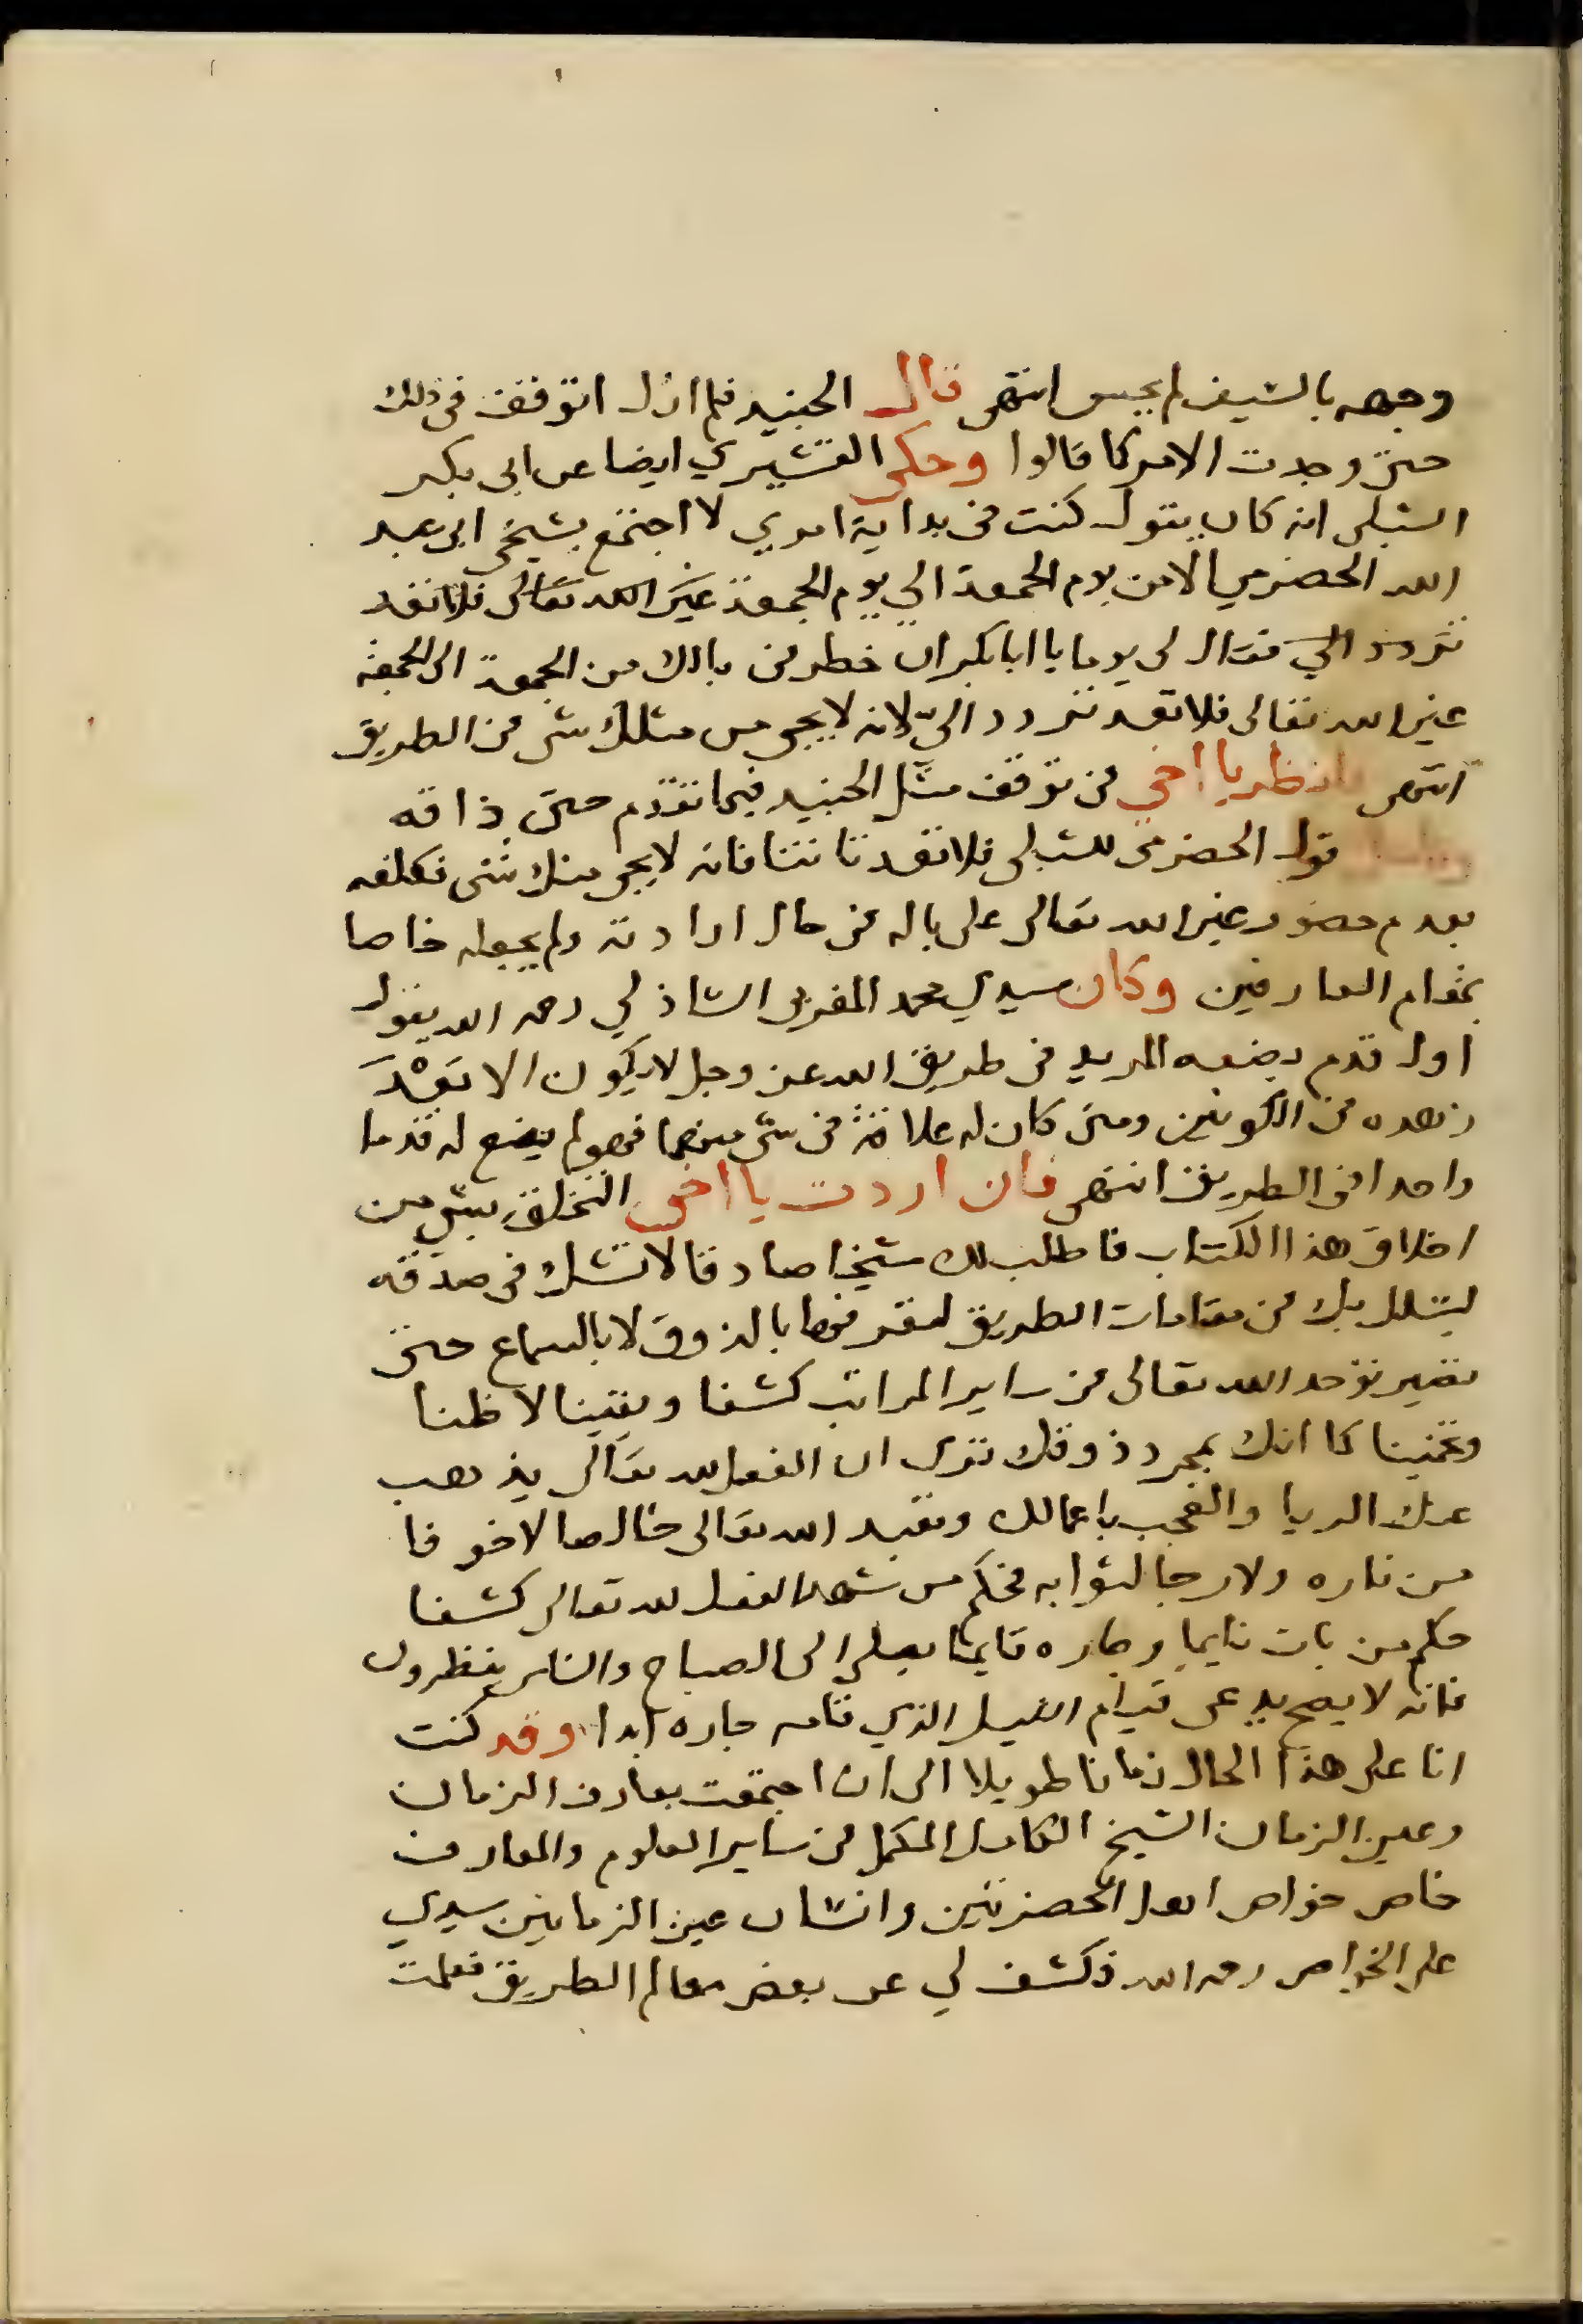 وجهه بالسيف لم يحس انتهى قال الجنيد فلم ازل اتوقف فى ذلك
حتى وجدت الامر كما قالوا وحكى القشيري ايضا عن ابى بكر
الشبلى انه كان يقول كنت فى بداية امري لا اجتمع بشيخى ابى عبد
الله الحضرمي الا من يوم الجمعة الي يوم الجمعة غير الله تعالى فلا تعد
تتردد الي فقال لى يوما يا ابا بكر ان خطر فى بالك من الجمعة الى الجمعة
غير الله تعالى فلا تعد تتردد اليّ لانه لا يجى من مثلك شى فى الطريق
انتهى فانظر يا اخي فى توقف مثل الجنيد فيما تقدم حتى ذاقه
قول الحضرمى للشبلى فلا تعد تاتنا فانه لا يجى منك شى فكلفه
بعدم حضور غير الله تعالى على باله فى حال ارادته ولم يجعله خاصا
بمقام العارفين وكان سيدي محمد المغربى الشاذلي رحمه الله يقول
اول قدم يضعه المريد فى طريق الله عز وجل لا يكون الا بَعْدَ
زهده فى الكونين ومتى كان له علاقة فى شى منهما فهو لم يضع له قدما
واحدا فى الطريق انتهى فان اردت يا اخى التخلق بشى من
اخلاق هذا الكتاب فاطلب لك شيخا صادقا لا تشك فى صدقه
ليسلك بك فى مقامات الطريق لتعرفها بالذوق لا بالسماع حتى
تصير توحد الله تعالى فى ساير المراتب كشفا ويقينا لا ظنا
وتخمينا كما انك بمجرد ذوقك ترى ان الفعل لله تعالى يذهب
عنك الريا والعجب باعمالك وتعبد الله تعالى خالصا لا خوفا
من ناره ولا رجا لثوابه فحكم من شهد الفعل لله تعالى كشفا
حكم من بات نايما وجاره قايما يصلى الى الصباح والناس ينظرون
فانه لا يصح يدعى قيام الليل الذي قامه جاره ابدا وقد كنت
انا على هذا الحال زمانا طويلا الى ان اجتمعت بعارف الزمان
وعين الزمان الشيخ الكامل المكمل فى ساير العلوم والمعارف
خاص خواص اهل الحضرتين وانسان عين الزمانين سيدي
على الخواص رحمه الله فكشف لي عن بعض معالم الطريق فعلمت